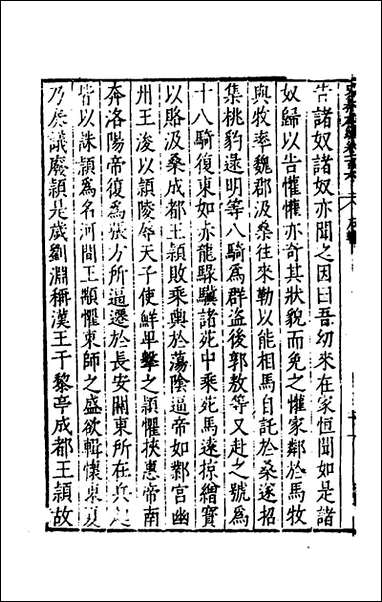 告諸奴諸奴亦聞之因曰吾幼來在家恒聞如是諸
奴歸以告懼懼亦奇其狀貌而免之懼家鄰於馬牧
與牧率魏郡汲桑往來勒以能相馬自託於桑遂招
集桃豹逯明等八騎爲群盗後郭敖等又赴之號爲
十八騎復東如赤龍騄驥諸苑中乘苑馬遠掠繒寶
以賂汲桑成都王頴敗乘輿於蕩陰逼帝如鄴宫幽
州王浚以頴陵辱天子使鮮卑擊之頴懼挾惠帝南
奔洛陽帝復爲張方所逼遷於長安關東所在兵起
皆以誅頴爲名河間王顒懼東師之盛欲輯懷東夏
乃奏議廢頴是歲劉淵稱漢王于黎亭成都王頴故